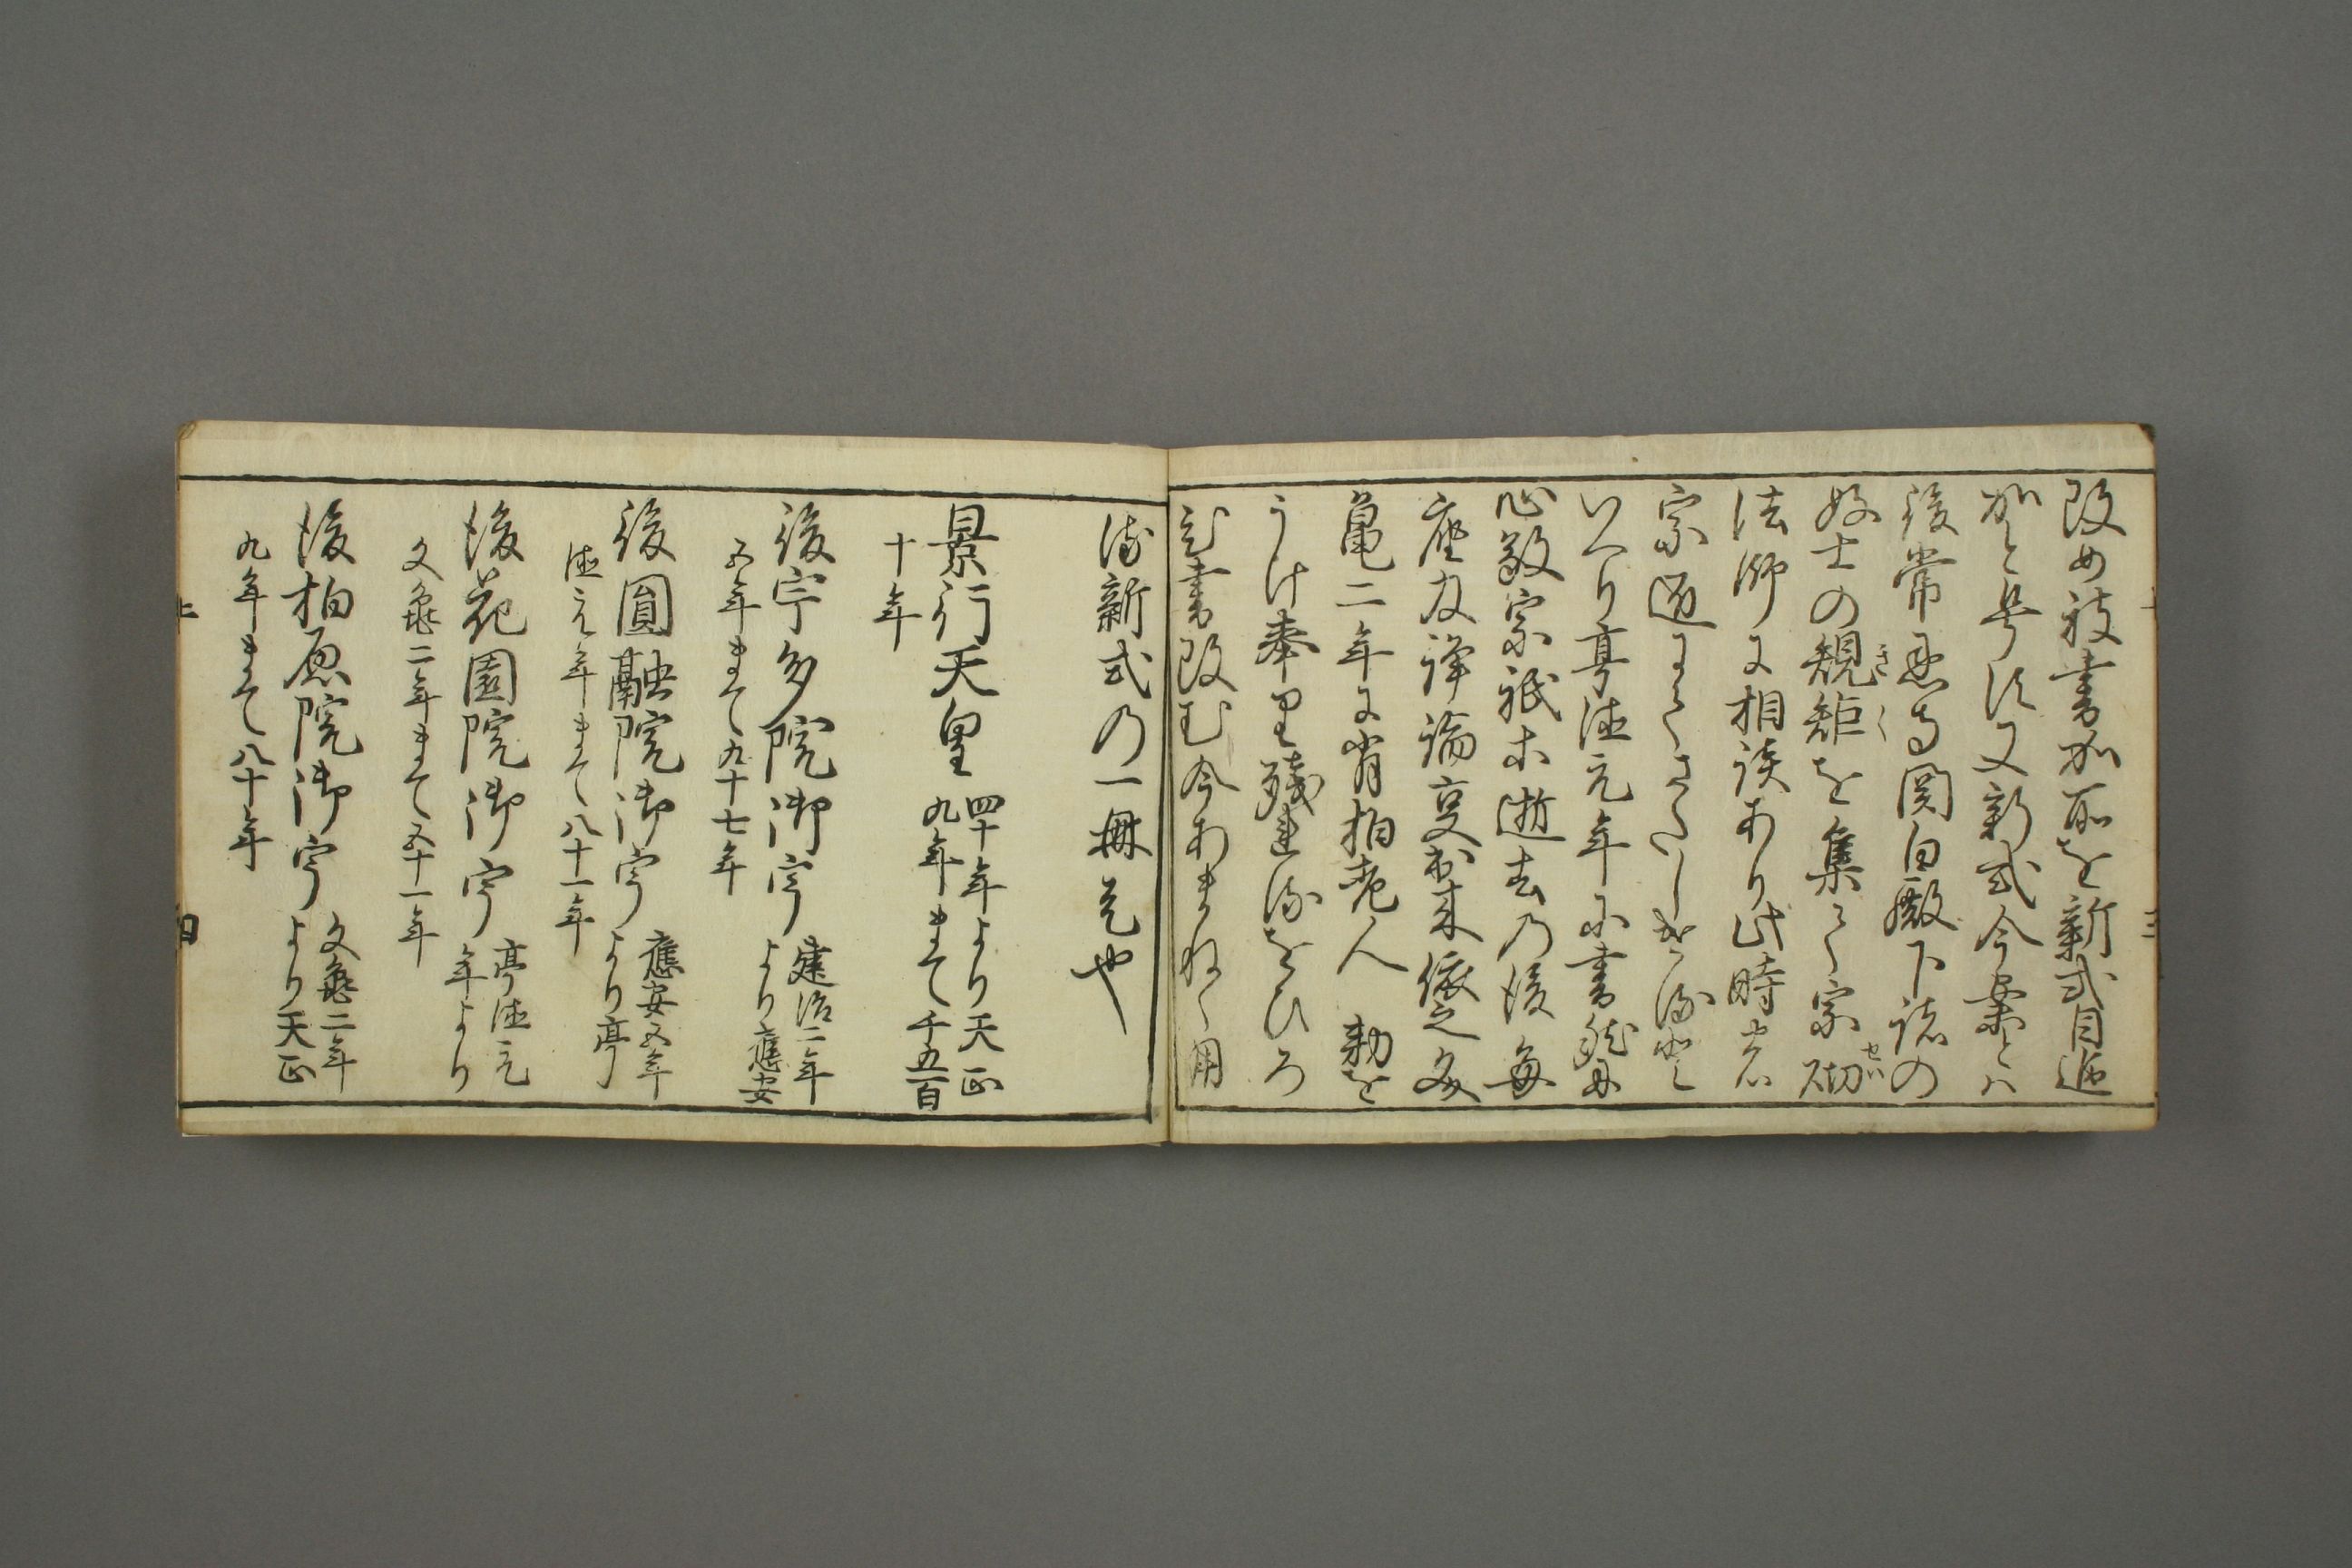 改め被書加所を新式目追
加と号す又新式今案とハ
後常恩寺関白殿下諸の
好士の規矩を集て宗砌
きく
せい
法師に相談あり此時
宗
いへり享徳元年に書
心敬宗祇等逝去乃後毎
座及諍論変出来依之文
亀二年に肖柏老人 勅を
うけ奉り残
書改む今あまねく用
新式の一冊是也
景行天皇 四十年より天正
九年まて千五百
十年
後宇多院御宇 建治二年
より應安
五年まて九十七年
後圓融院御宇 應安五年
より享
徳元年まて八十一年
後花園院御宇 享徳元
年より
文亀二年まて五十一年
後柏原院御宇 文亀二年
より天正
九年まて八十年
上
四
三